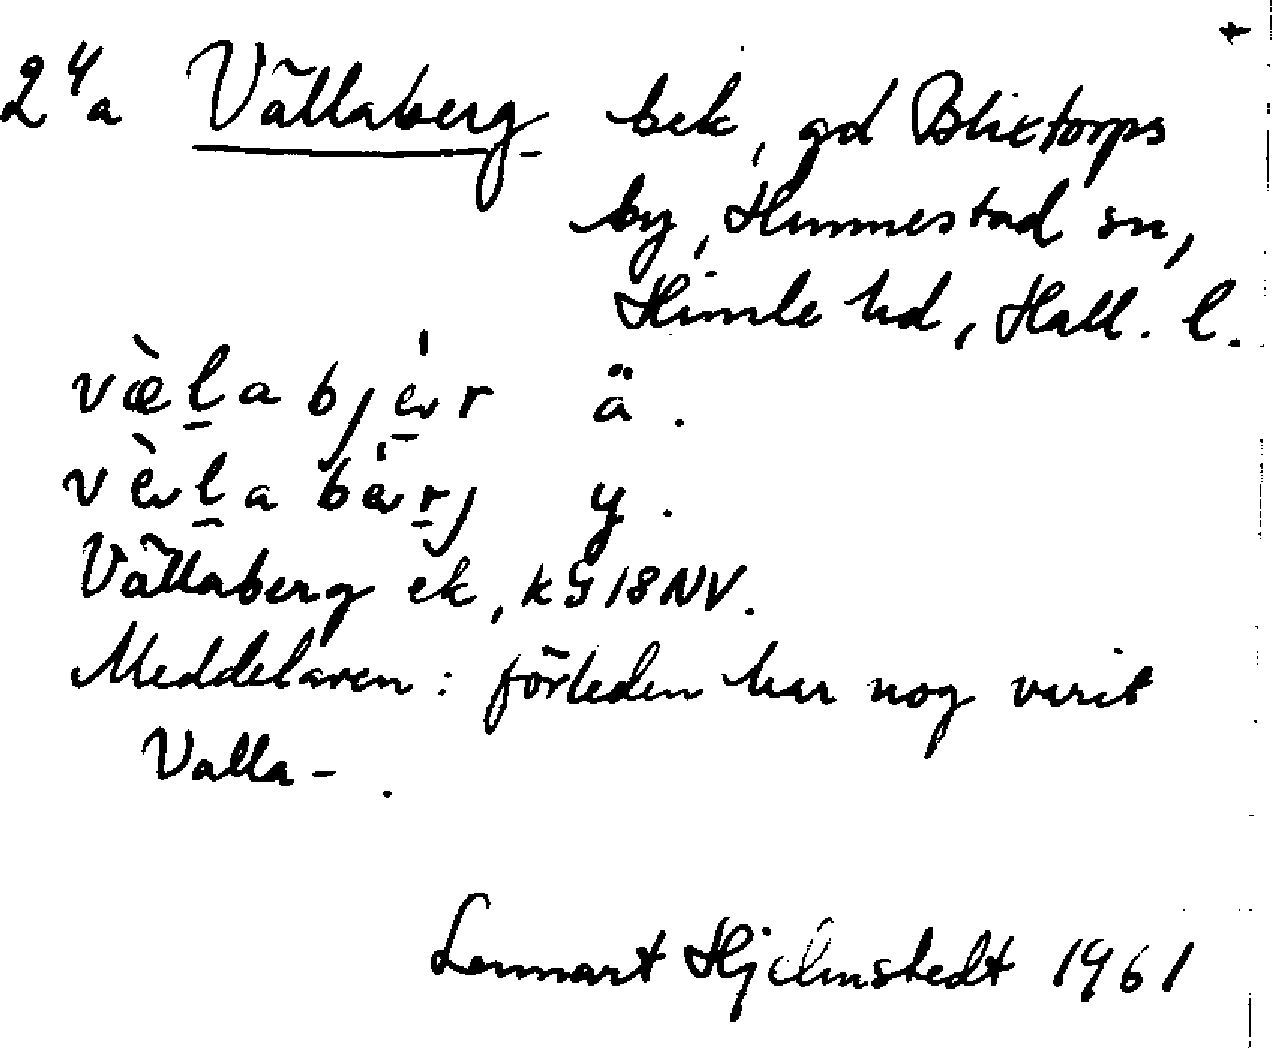 2⁴a Vällaberg bek, gd Blixtorps
by, Hunnestad sn,
Himle hd, Hall. l.
vœ̀l̠abjé̠r ä.
vèl̠abér̠j y.
Vällaberg ek, k G 18 NV.
Meddelaren: förleden har nog varit
Valla-.
Lennart Hjelmstedt 1961